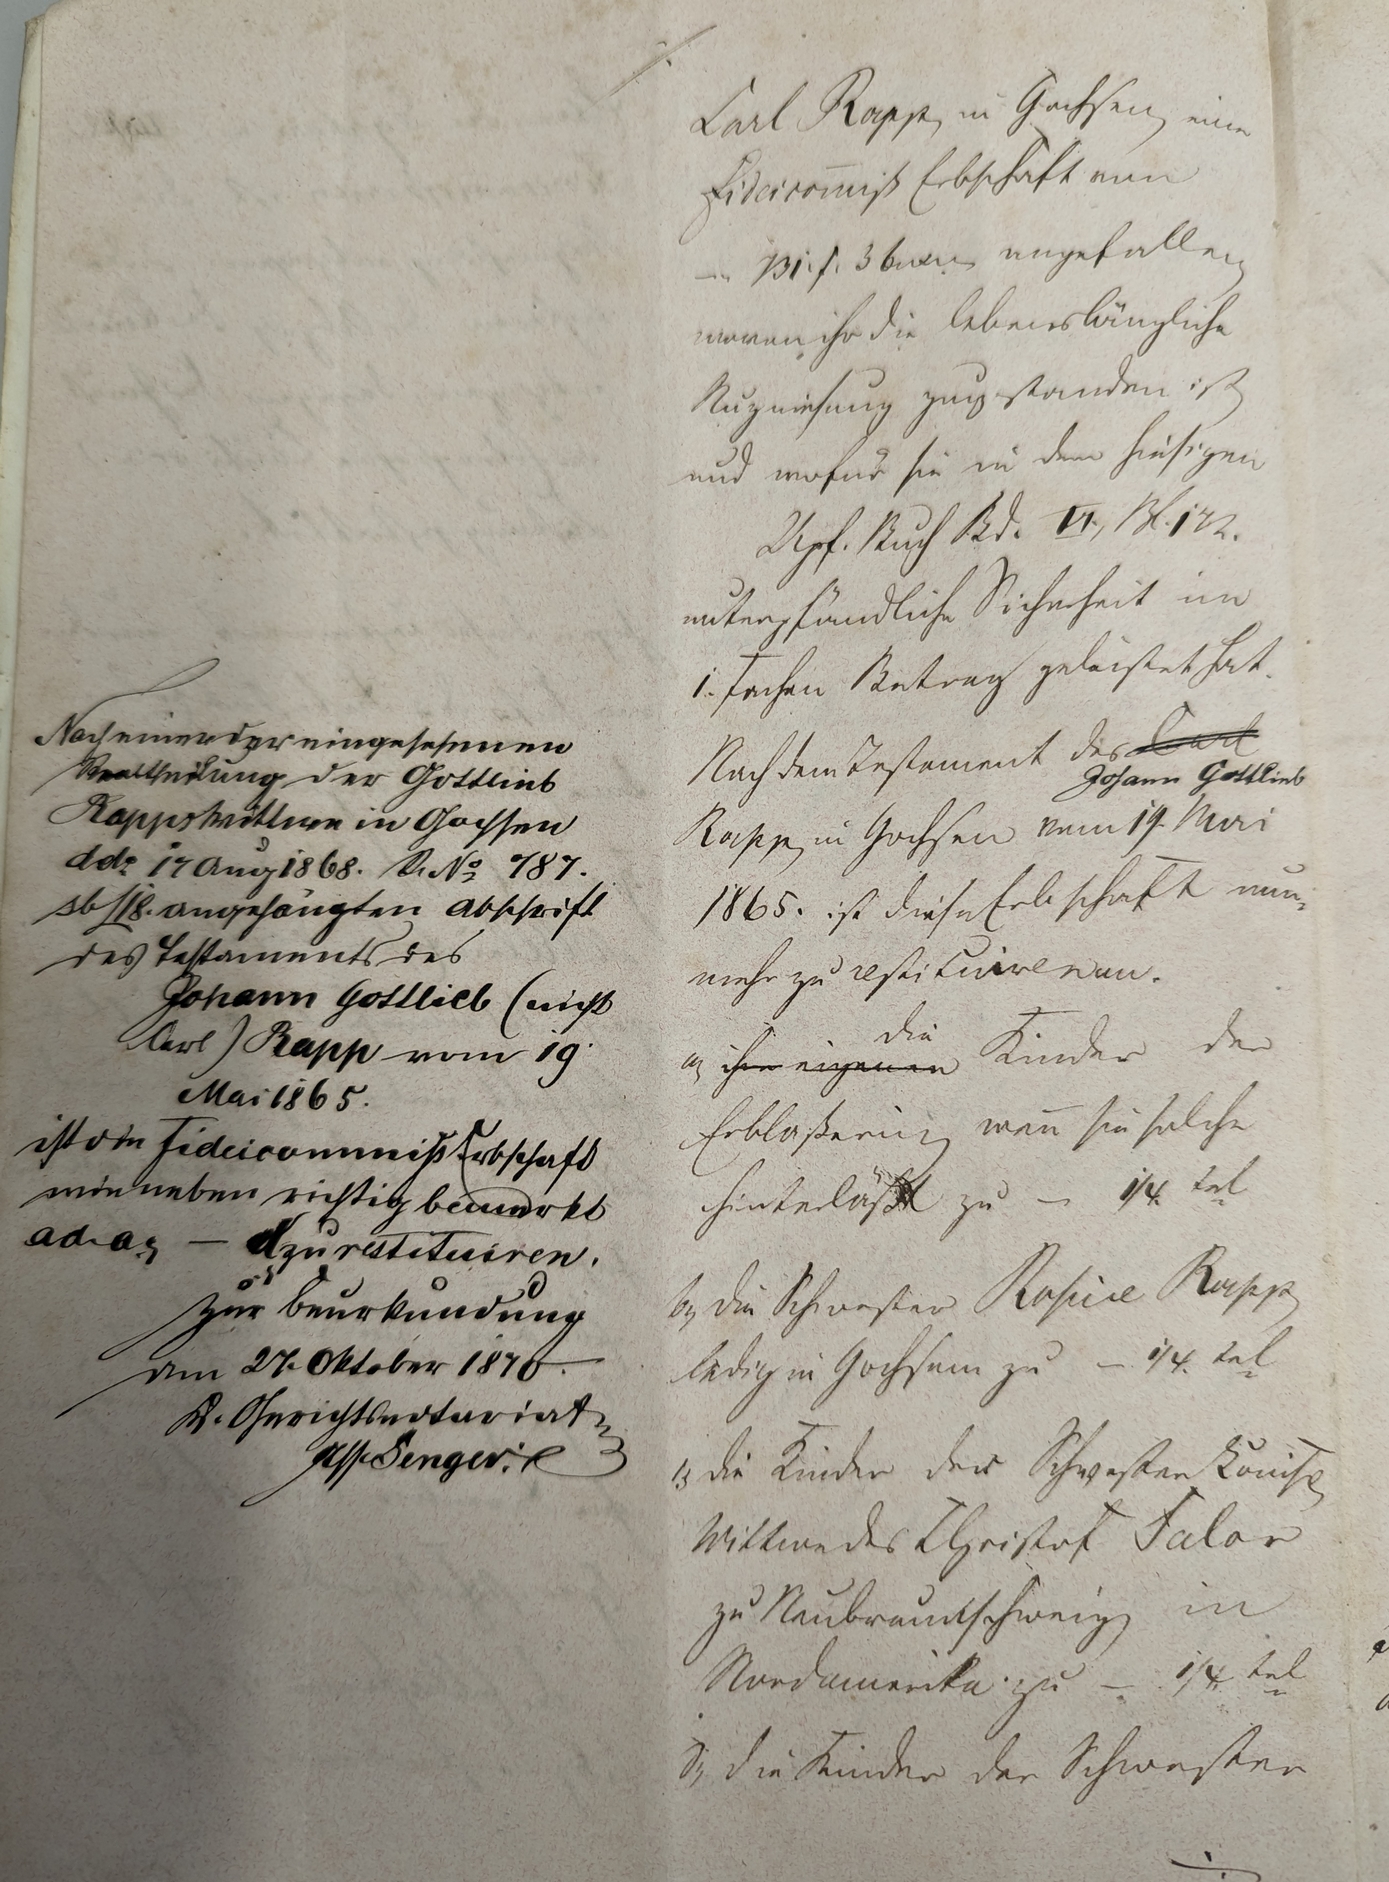 Carl Rapp, in Gochsen, eine
Fideicom̅iß Erbschaft von
angefallen,
wovon ihr die lebenslängliche
Nuznießung zugestanden ist
und wofür sie in dem hiesigen
Upf. Buch Bd. VI, Bl. 172.
unterpfändliche Sicherheit im
1. fachen Betrag geleistet hat.
Nach dem Testament des Carl
Johann Gottlieb
Rapp, in Gochsen vom 19. Mai
1865. ist diese Erbschaft nun-
mehr zu restituiren an.
die
a, ihre eigenen Kinder der
Erblaßerin, wen̅ sie solche
hinterläßt zu — 1/4. tel
b, die Schwester Rosine Rapp,
ledig in Gochsen zu — 1/4. tel
c, die Kinder der Schwester Louise,
Wittwe des Christof Taler
zu Neubraunschweig, in
Nordamerika zu — 1/4. tel
d, die Kinder der Schwester
Nach einer der eingesehenen
Realtheilung der Gottlieb
Rapps Wittwe in Gochsen
ddo 17 Aug 1868. R. No 787.
angehängten Abschrift
des Testaments des
Johann Gottlieb (nicht
Carl) Rapp vom 19.
Mai 1865.
ist die Fideicommiß Erbschaft
wie neben richtig bemerkt
ad. a, — d zu restituiren.
Zur Beurkundung
am 27. Oktober 1870.
K. Gerichtsnotariat
Ass. Senger.